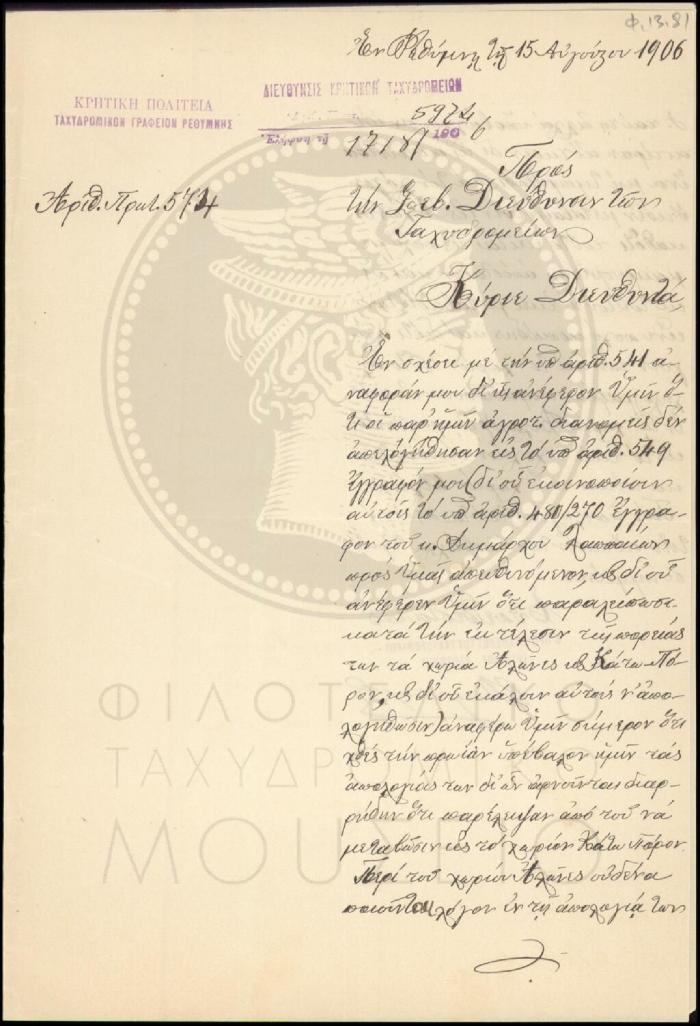 Φ.13.81
Ἐν Ρεθύμνῃ τῇ 15 Αὐγούστου 1906
ΚΡΗΤΙΚΗ ΠΟΛΙΤΕΙΑ
ΤΑΧΥΔΡΟΜΙΚΟΝ ΓΡΑΦΕΙΟΝ ΡΕΘΥΜΝΗΣ
ΔΙΕΥΘΥΝΣΙΣ ΚΡΗΤΙΚΩΝ ΤΑΧΥΔΡΟΜΕΙΩΝ
5974
Ἐλήφθη τῇ 17/8/ 1906
Ἀριθ. Πρωτ. 574
Πρός
τὴν Σεβ. Διεύθυνσιν τῶν
Ταχυδρομείων
Κύριε Διευθυντά,
Ἐν σχέσει μὲ τὴν ὑπ' ἀριθ. 541 ἀ-
ναφοράν μου δι' ἧς ἀνέφερον Ὑμῖν ὅ-
τι οἱ παρ' ἡμῖν ἀγροτ. διανομεῖς δὲν
ἀπελογήθησαν εἰς τὸ ὑπ' ἀριθ. 549
ἔγγραφόν μου (δι' οὗ ἐκοινοποίουν
αὐτοῖς τὸ ὑπ' ἀριθ. 481/270 ἔγγρα-
φον τοῦ κ. Δημάρχου Λαππαίων
πρὸς Ὑμᾶς ἀπευθυνόμενον, καὶ δι' οὗ
ἀνέφερεν Ὑμῖν ὅτι παραλείπουσι
κατὰ τὴν ἐκτέλεσιν τῆς πορείας
των τὰ χωριὰ Ἀλώνες καὶ Κάτω Πό-
ρον, καὶ δι' οὗ ἐκάλουν αὐτοῖς ν' ἀπο-
λογηθῶσιν) ἀναφέρω Ὑμῖν σήμερον ὅτι
χθὲς τὴν πρωΐαν ὑπέβαλον ἡμῖν τὰς
ἀπολογίας των δι' ὧν ἀρνοῦνται διαρ-
ρήδην ὅτι παρέλειψαν ἀπὸ τοῦ νὰ
μεταβῶσιν εἰς τὸ χωρίον Κάτω Πόρον.
Περὶ τοῦ χωρίου Ἀλώνες οὐδένα
ποιοῦνται λόγον ἐν τῇ ἀπολογίᾳ των
ΦΙΛΟΤΕΛΙΚΟ
ΤΑΧΥΔΡΟΜΙΚΟ
ΜΟΥΣΕΙΟ